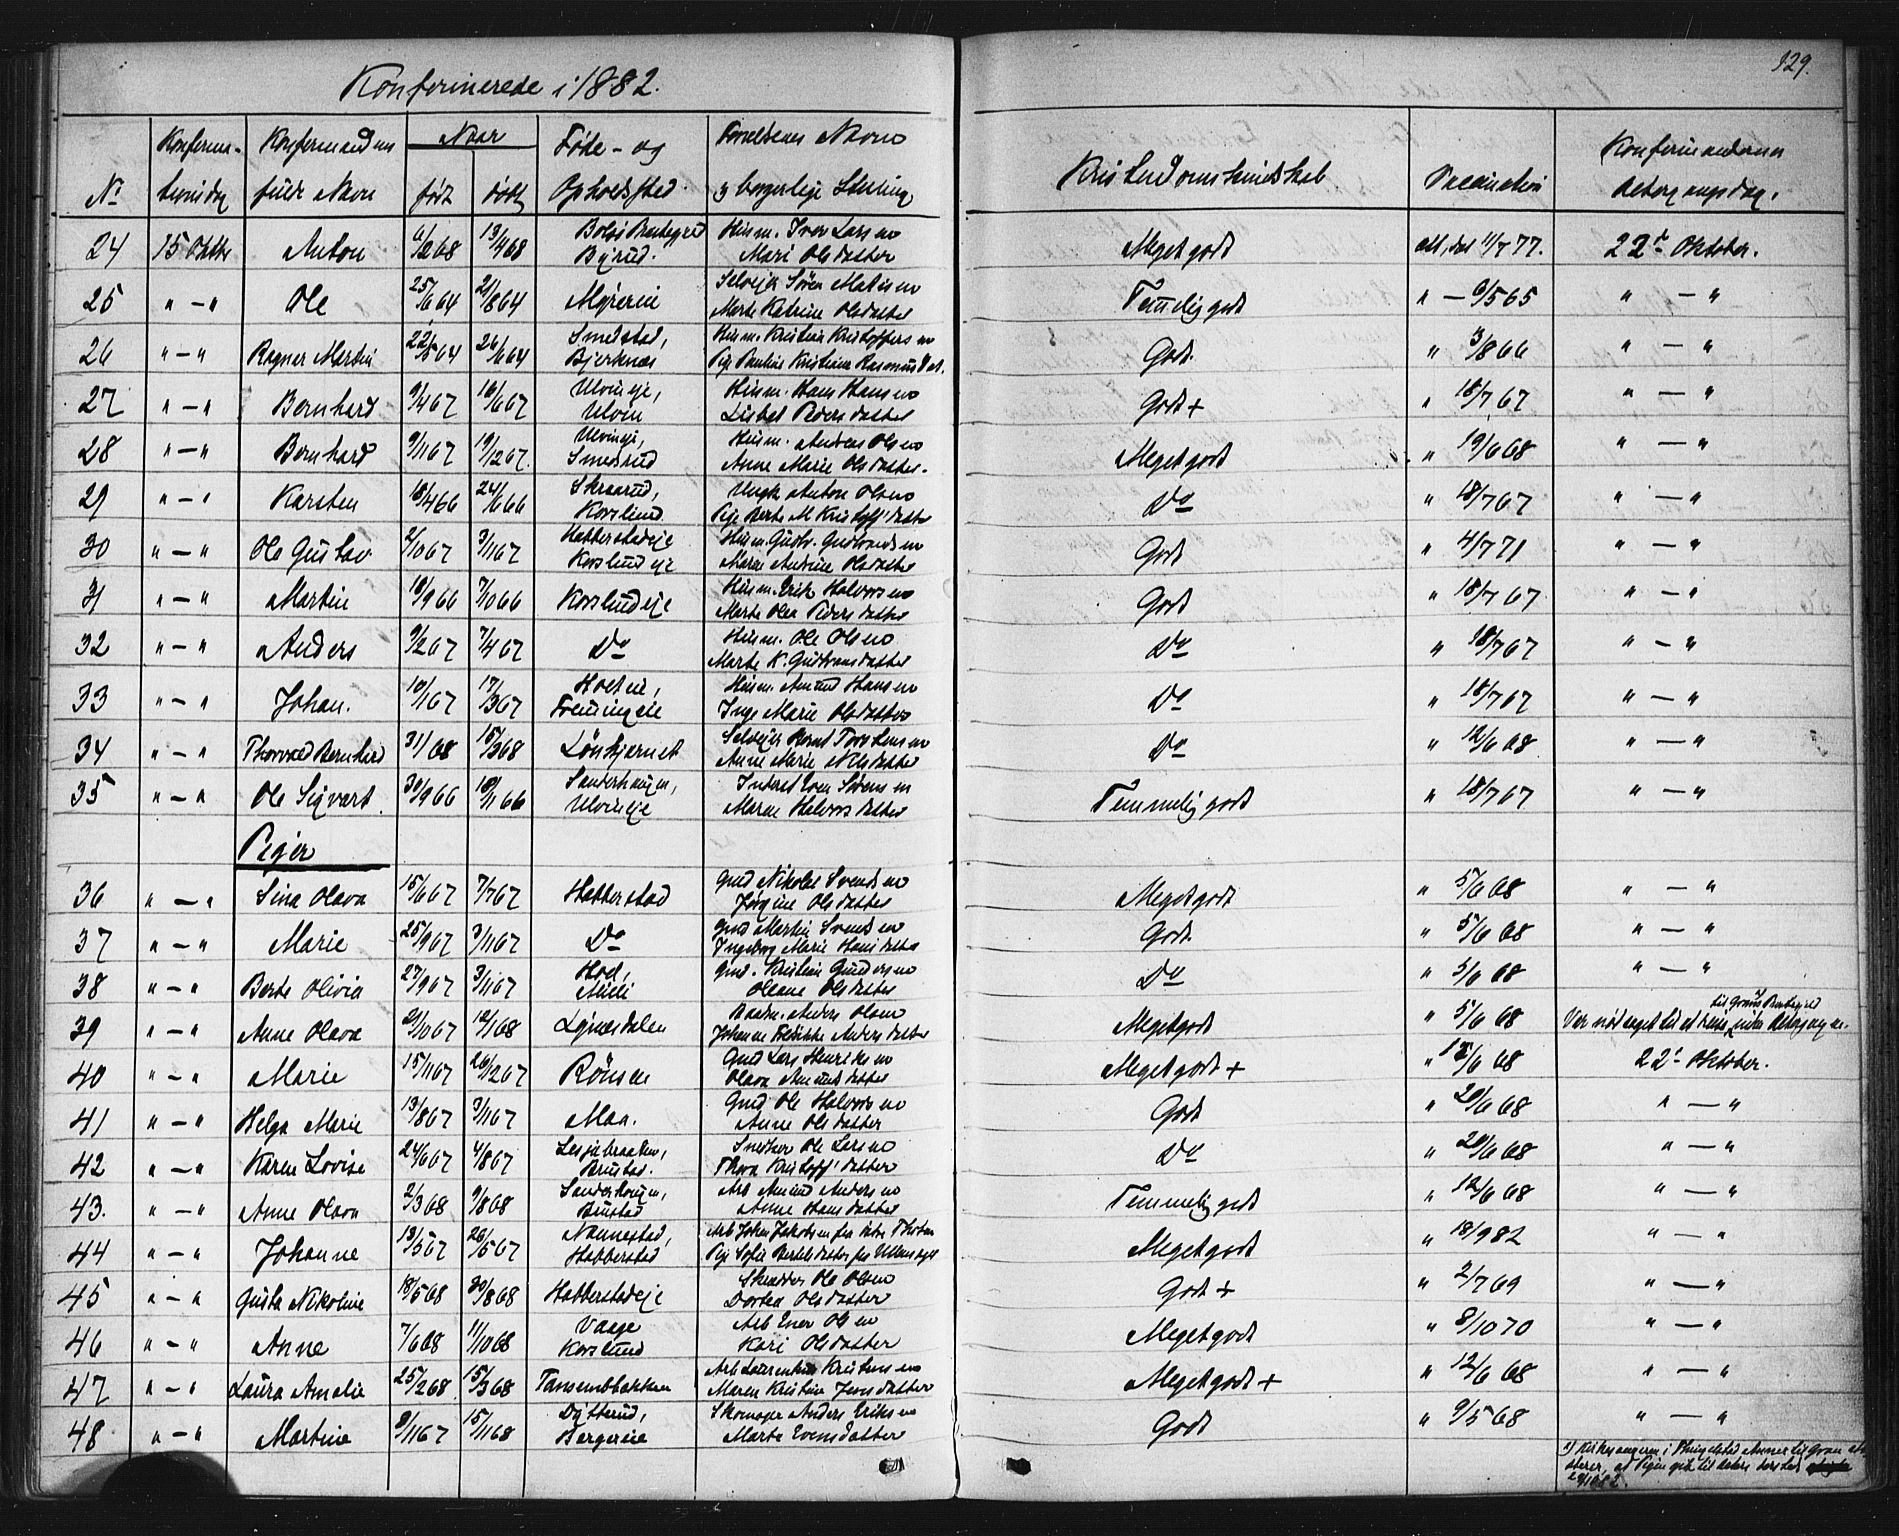 Konfirmerede i 1882.
129.
No
Konfirma-
tionsdag
Konfirmandens
fulde Navn
Naar
født
døbt
Føde- og
Opholdssted
Forældrenes Navn
og borgerlige Stilling
Kristendomskundskab
Vaccination
Konfirmanderne
24 15 Oktbr Anton 6/2 68 13/4 68 Byrud. Husm. Iver Larsen Mari Olsdatter Meget godt att. dat 11/7 77. 22d Oktober.
25 " — " Ole 25/6 64 21/8 64 Myreeie Selvejer Søren Marte Katrine Olsdatter Temmelig godt " — 9/5 65 " — "
26 " — " Ragner Martin 22/5 64 26/6 64 Smedstad, Bjerknæs Husm. Kristian Kristoffersen Pige Pauline Kristiane Rasmusdat. Godt " 3/8 66 " — "
27 " — " Bernhard 9/4 67 16/6 67 Ulvineje, Ulvin Husm. Hans Hansen Lisbet Pedersdatter Godt + " 18/7 67 " — "
28 " — " Bernhard 9/11 67 19/12 67. Ulvineje, Smedsrud Husm. Andreas Olsen Anne Marie Olsdatter. Meget godt " 19/6 68 " — "
29 " — " Karsten 18/4 66 24/6 66 Skraarud, Korslund. Ungk Anton Olsen Pige Berte M Kristoff'datter Do " 18/7 67 " — "
30 " — " Ole Gustav 2/10 67 3/11 67 Habberstadeje Korslundeje Husm. Gustv. Gudbrandsen Maren Andrine Olsdatter Godt " 4/7 71 " — "
31 " — " Martin 18/9 66 7/10 66 Korslundeje Husm. Erik Halvorsen Marte Olea Pedersdatter Godt " 18/7 67 " — "
32 " — " Anders 9/2 67 7/4 67 Do Husm. Ole Olsen Marte K. Gudbransdatter Do " 18/7 67 " — "
33 " — " Johan. 10/1 67 17/3 67 Husm. Amund Hansen Inge Marie Olsdatter Do " 18/7 67 " — "
34 " — " Thorvald Bernhard 31/1 68 15/3 68 Lønstjernet Selvejer Bernt Torstensen Anne Marie Nilsdatter Do " 12/6 68 " — "
35 " — " Ole Sigvart. 30/9 66 18/11 66 Sanderhaugen, Ulvineje Inderst Even Sørensen Maren Halvorsdatter Temmelig godt " 18/7 67 " — "
Piger
36 " — " Sina Olava 15/6 67 7/7 67 Habberstad Gmd Nikolai Svendsen Jørgine Olsdatter Meget godt " 5/6 68 " — "
37 " — " Marie 25/9 67 3/11 67 Do Gmd Martin Svendsen Ingeborg Marie Hansdatter Godt " 5/6 68 " — "
38 " — " Berte Olivia 27/9 67 3/11 67 Hol, Gmd. Kristian Gundersen Oleane Olsdatter Do " 5/6 68 " — "
39 " — " Anne Olava 21/10 67 12/1 68 Lynesdalen Anders Olsen Johanne Andersdatter Meget godt " 5/6 68 Var nødsaget til at reise til Grans Prestegjeld inden
40 " — " Marie 15/11 67 26/12 67 Rønsen Gmd Lars Henriksen Olava Amundsdatter Meget godt + " 12/6 68 22d Oktober.
41 " — " Helga Marie 13/8 67 3/11 67 Moa. Gmd Ole Halvorsen Anne Olsdatter Godt " 20/6 68 " — "
42 " — " Karen Lovise 24/6 67 4/8 67 Lesjebraaten, Brustad. Snedker Ole Larsen Thora Kristoff'datter Do " 20/6 68 " — "
43. " — " Anne Olava 2/3 68 9/8 68 Sanderhougen, Brustad Arb Amund Andersen Anne Hansdatter Temmelig godt " 12/6 68 " — "
44 " — " Johanne 13/5 67 26/5 67 Nannestad, Habberstad Arb Johan Jakobsen fra Pige Sofie Bertelsdatter fra Ullensager Meget godt " 18/9 82 " — "
45 " — " Gusta Nikoline 18/5 68 30/8 68 Habberstadeje Skrædder Ole Olsen Dortea Olsdatter Godt + " 2/7 69 " — "
46 " — " Anne 7/6 68 11/10 68 Vaage Korslund Arb Ener Olsen Kari Olsdatter Meget godt " 8/10 70 " — "
47 " — " Laura Amalie 25/2 68 15/3 68 Tansembbakken Arb Laurentius Kristensen Maren Kristine Jensdatter Meget godt + " 12/6 68 " — "
48 " — " Martine 9/11 67 15/1 68 Dytterud, Bergereie Skomager Anders Eriksen Marte Evensdatter Godt " 9/5 68 " — "